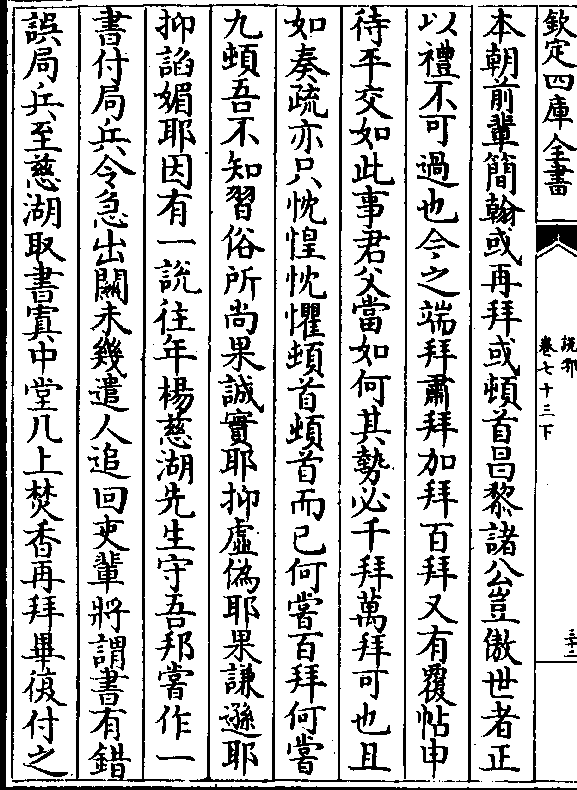 欽定四庫全書
說郛
卷七十三下
三十二
本朝前輩簡翰或再拜或頓首昌黎諸公豈傲世者正
以禮不可過也今之端拜肅拜加拜百拜又有覆帖申
待平交如此事君父當如何其勢必千拜萬拜可也且
如奏疏亦只忱惶忱懼頓首頓首而已何嘗百拜何嘗
九頓吾不知習俗所尚果誠實耶抑虛偽耶果謙遜耶
抑諂媚耶因有一說往年楊慈湖先生守吾邦嘗作一
書付局兵令急出關未幾遣人追回吏輩將謂書有錯
誤局兵至慈湖取書寘中堂几上焚香再拜畢復付之